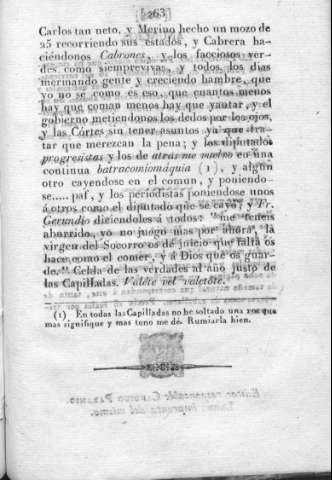 [263]
Carlos tan neto, y Merino hecho un mozo de
25 recorriendo sus estados, y Cabrera ha-
ciéndonos Cabrones, y los facciosos ver-
des como siemprevivas, y todos los dias
mermando gente y creciendo hambre, que
yo no se como es eso, que cuantos menos
hay que coman menos hay que yantar, y el
gobierno metiendonos los dedos por los ojos,
y las Córtes sin tener asuntos ya que tra-
tar que merezcan la pena; y los diputados
progresistas y los de atras me vuelvo en una
continua batracomiomáquia (1), y algun
otro cayendose en el comun, y poniendo-
se..... paf, y los periodistas poniendose unos
á otros como el diputado que se cayó; y Fr.
Gerundio diciendoles á todos: "me teneis
aburrido, yo no juego mas por ahora, la
virgen del Socorro os dé juicio que falta os
hace como el comer, y á Dios que os guar-
de." Celda de las verdades al año justo de
las Capilladas. Valéte vel valetóte.
(1) En todas las Capilladas no he soltado una voz que
mas signifique y mas tono me dé. Rumiarla bien.